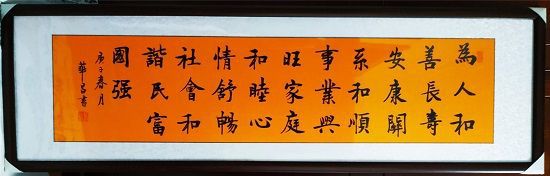 為人和
善長壽
安康關
系和順
事業興
旺家庭
和睦心
情舒暢
社會和
諧民富
國强
庚子春月
華書